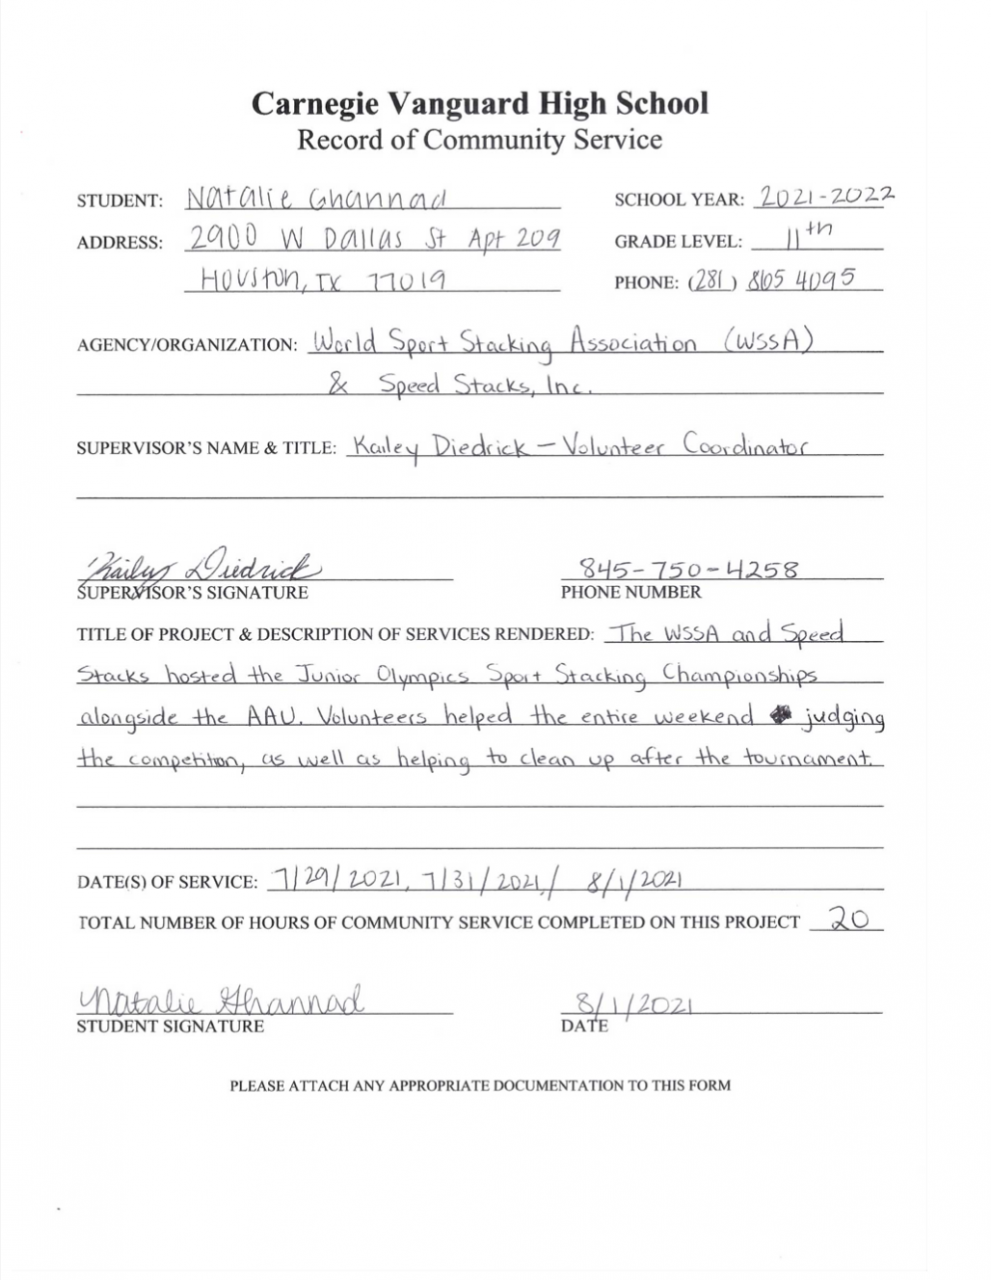 Carnegie Vanguard High School
Record of Community Service
STUDENT: Natalie Ghannad SCHOOL YEAR: 2021-2022
ADDRESS: 2900 W Dallas St Apt 209 GRADE LEVEL: 11th
Houston, TX 77019 PHONE: (281) 865 4095
AGENCY/ORGANIZATION: World Sport Stacking Association (WSSA)
& Speed Stacks, Inc.
SUPERVISOR'S NAME & TITLE: Kailey Diedrick - Volunteer Coordinator
Kailey Diedrick 845-750-4258
SUPERVISOR'S SIGNATURE PHONE NUMBER
TITLE OF PROJECT & DESCRIPTION OF SERVICES RENDERED: The WSSA and Speed
Stacks hosted the Junior Olympics Sport Stacking Championships
alongside the AAU. Volunteers helped the entire weekend judging
the competition, as well as helping to clean up after the tournament.
DATE(S) OF SERVICE: 7/29/2021, 7/31/2021, / 8/1/2021
TOTAL NUMBER OF HOURS OF COMMUNITY SERVICE COMPLETED ON THIS PROJECT 20
Natalie Ghannad 8/1/2021
STUDENT SIGNATURE DATE
PLEASE ATTACH ANY APPROPRIATE DOCUMENTATION TO THIS FORM